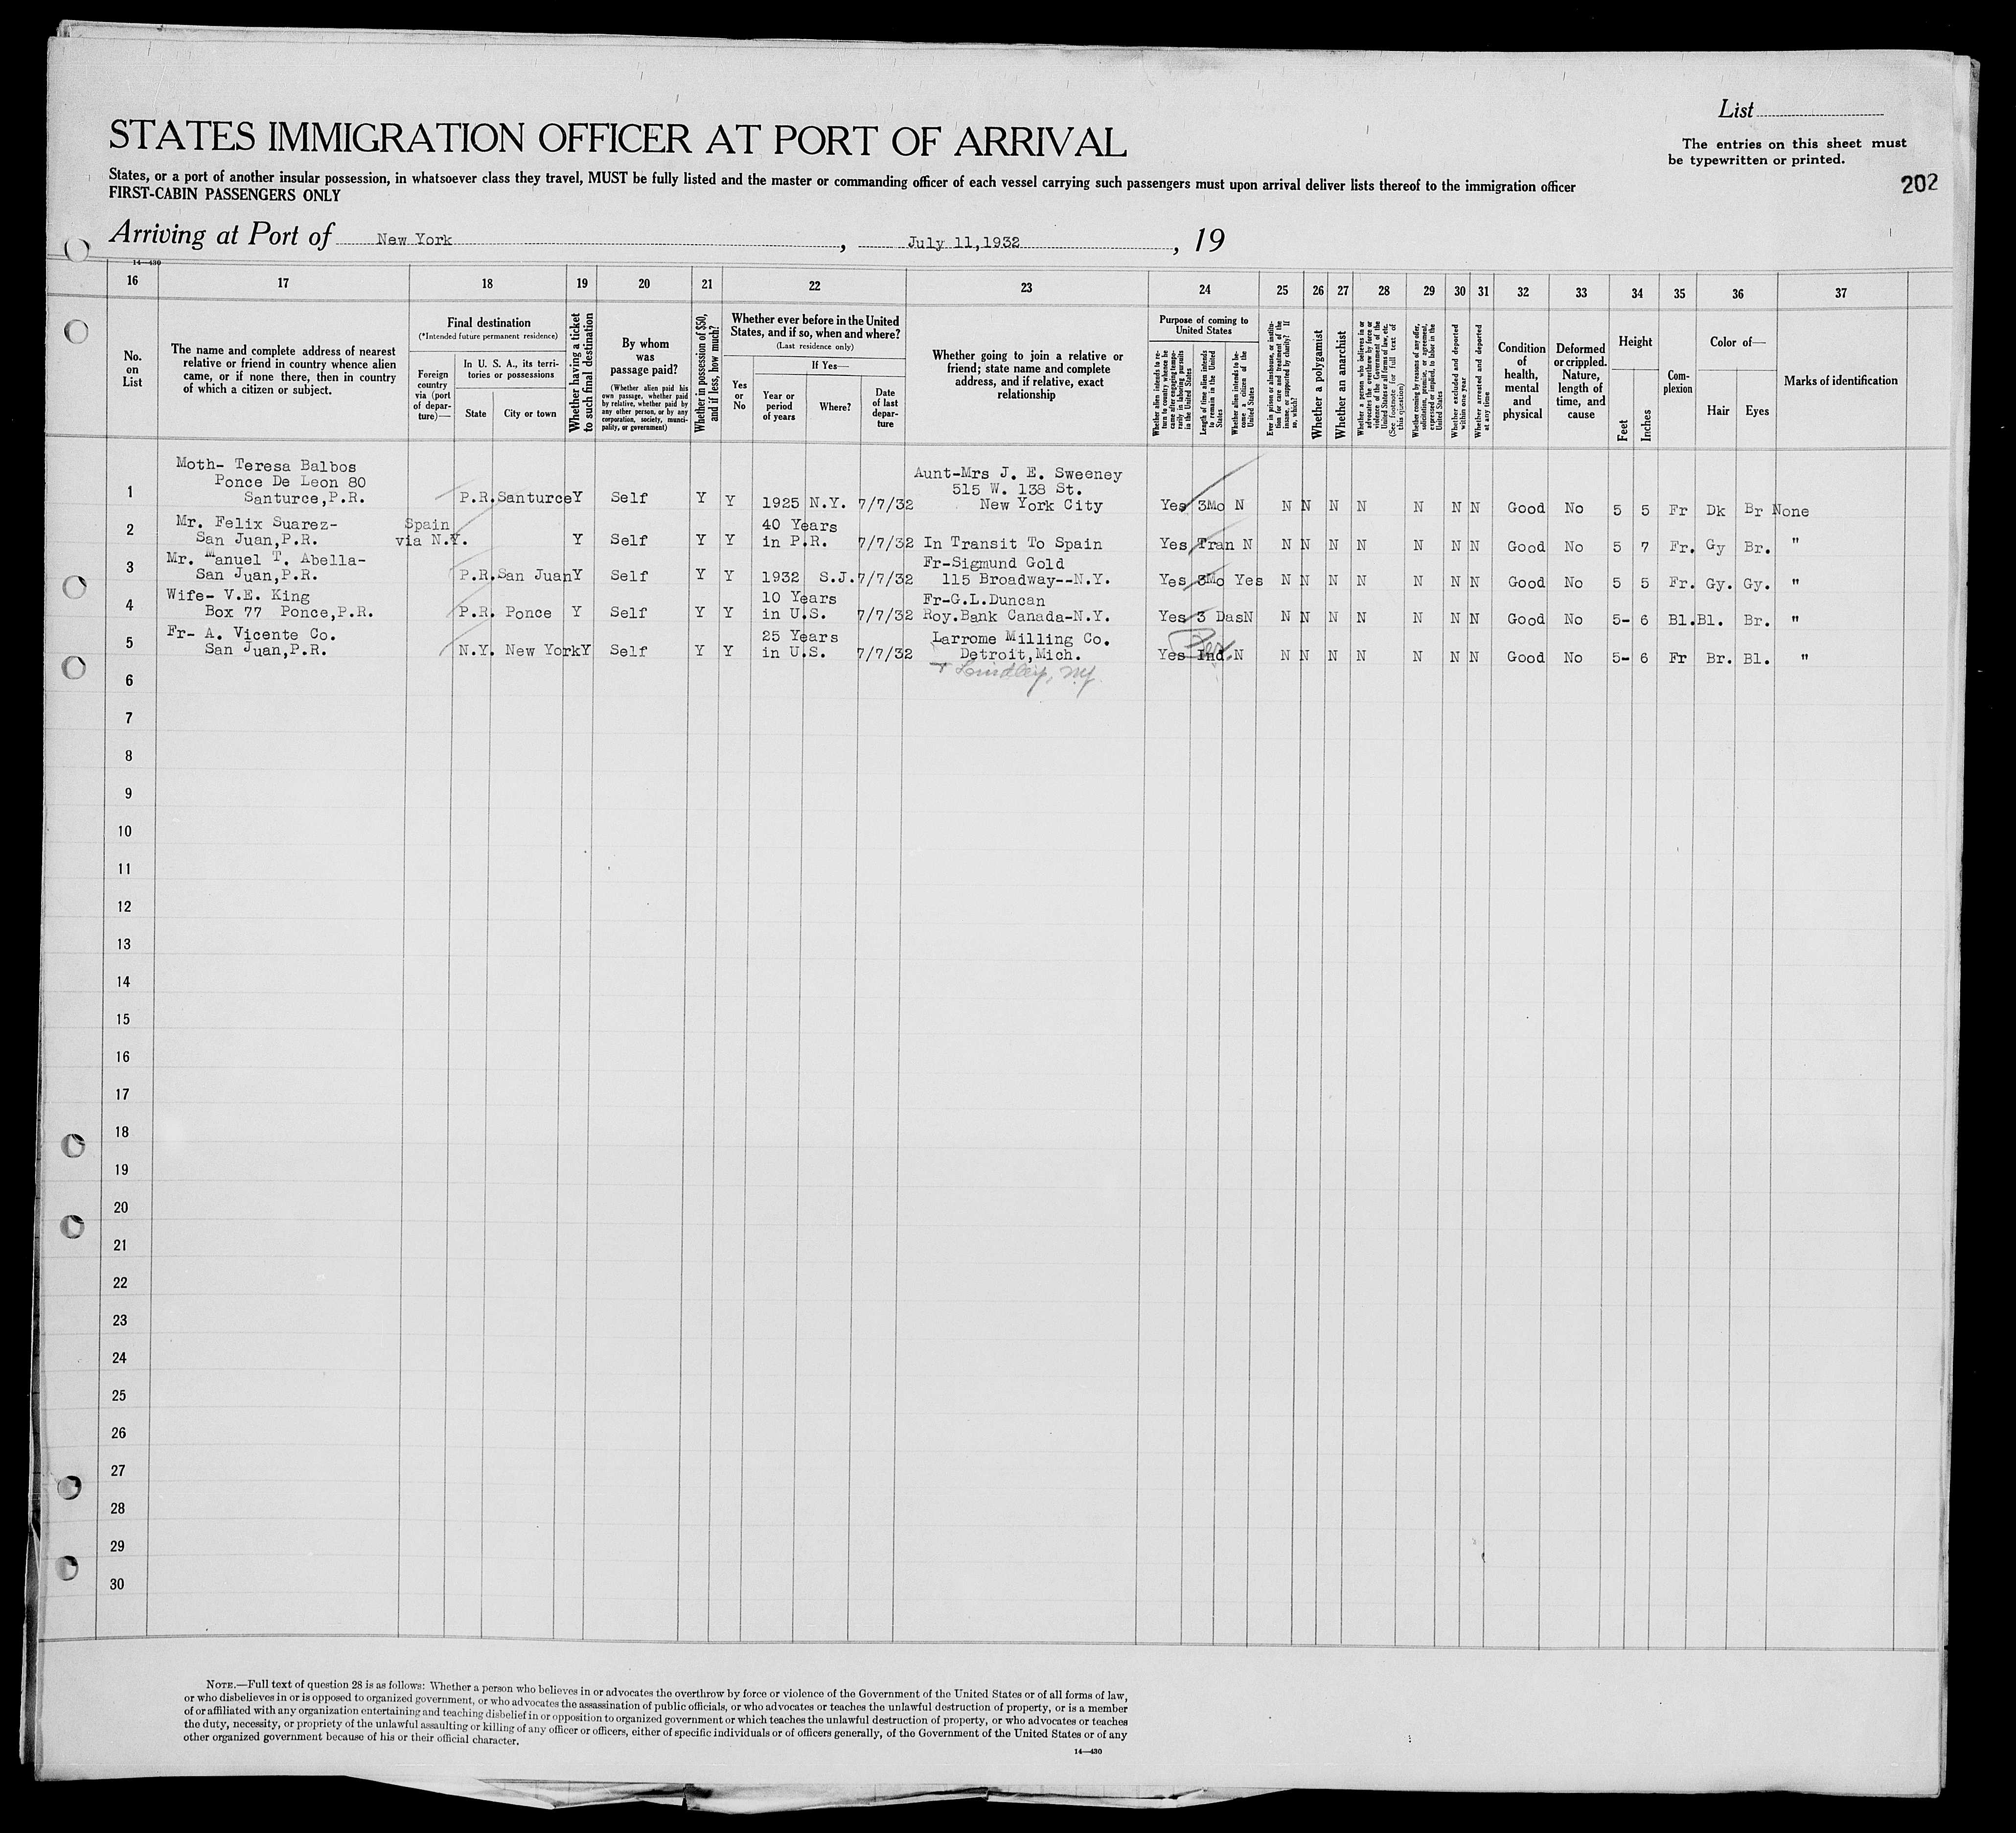 List
The entries on this sheet must
be typewritten or printed.
202
STATES IMMIGRATION OFFICER AT PORT OF ARRIVAL
States, or a port of another insular possession, in whatsoever class they travel, MUST be fully listed and the master or commanding officer of each vessel carrying such passengers must upon arrival deliver lists thereof to the immigration officer
FIRST-CABIN PASSENGERS ONLY
Arriving at Port of New York, July 11,1932, 19
14—430
16 17 18 19 20 21 22 23 24 25 26 27 28 29 30 31 32 33 34 35 36 37
No. on List
The name and complete address of nearest relative or friend in country whence alien came, or if none there, then in country of which a citizen or subject.
Final destination
(*Intended future permanent residence)
Foreign country via (port of departure)—
In U. S. A., its territories or possessions
State
City or town
Whether having a ticket to such final destination
By whom was passage paid?
(Whether alien paid his own passage, whether paid by relative, whether paid by any other person, or by any corporation, society, municipality, or government)
Whether in possession of $50, and if less, how much?
Whether ever before in the United States, and if so, when and where?
(Last residence only)
Yes or No
If Yes—
Year or period of years
Where?
Date of last departure
Whether going to join a relative or friend; state name and complete address, and if relative, exact relationship
Purpose of coming to United States
Whether alien intends to return to country whence he came after engaging temporarily in laboring pursuits in the United States
Length of time alien intends to remain in the United States
Whether alien intends to become a citizen of the United States
Ever in prison or almshouse, or institution for care and treatment of the insane, or supported by charity? If so, which?
Whether a polygamist
Whether an anarchist
Whether a person who believes in or advocates the overthrow by force or violence of the Government of the United States or all forms of law, etc. (See footnote for full text of this question)
Whether coming by reason of any offer, solicitation, promise, or agreement, expressed or implied, to labor in the United States
Whether excluded and deported within one year
Whether arrested and deported at any time
Condition of health, mental and physical
Deformed or crippled. Nature, length of time, and cause
Height
Feet
Inches
Complexion
Color of—
Hair
Eyes
Marks of identification
Moth- Teresa Balbos
Ponce De Leon 80
Aunt-Mrs J. E. Sweeney
515 W. 138 St.
1 Santurce,P.R. P.R. Santurce Y Self Y Y 1925 N.Y. 7/7/32 New York City Yes 3Mo N N N N N N N N Good No 5 5 Fr Dk Br None
Mr. Felix Suarez- Spain 40 Years
2 San Juan,P.R. via N.Y. Y Self Y Y in P.R. 7/7/32 In Transit To Spain Yes Tran N N N N N N N N Good No 5 7 Fr. Gy Br. "
Mr. Manuel T. Abella- Fr-Sigmund Gold
3 San Juan,P.R. P.R. San Juan Y Self Y Y 1932 S.J. 7/7/32 115 Broadway--N.Y. Yes 3Mo Yes N N N N N N N Good No 5 5 Fr. Gy. Gy. "
Wife- V.E. King 10 Years Fr-G.L.Duncan
4 Box 77 Ponce,P.R. P.R. Ponce Y Self Y Y in U.S. 7/7/32 Roy.Bank Canada-N.Y. Yes 3 Das N N N N N N N N Good No 5- 6 Bl. Bl. Br. "
Fr- A. Vicente Co. 25 Years Larrome Milling Co.
5 San Juan,P.R. N.Y. New York Y Self Y Y in U.S. 7/7/32 Detroit,Mich. Yes Ind. N N N N N N N N Good No 5- 6 Fr Br. Bl. "
Lindley, NY
6
7
8
9
10
11
12
13
14
15
16
17
18
19
20
21
22
23
24
25
26
27
28
29
30
NOTE.—Full text of question 28 is as follows: Whether a person who believes in or advocates the overthrow by force or violence of the Government of the United States or of all forms of law,
or who disbelieves in or is opposed to organized government, or who advocates the assassination of public officials, or who advocates or teaches the unlawful destruction of property, or is a member
of or affiliated with any organization entertaining and teaching disbelief in or opposition to organized government or which teaches the unlawful destruction of property, or who advocates or teaches
the duty, necessity, or propriety of the unlawful assaulting or killing of any officer or officers, either of specific individuals or of officers generally, of the Government of the United States or of any
other organized government because of his or their official character.
14—430